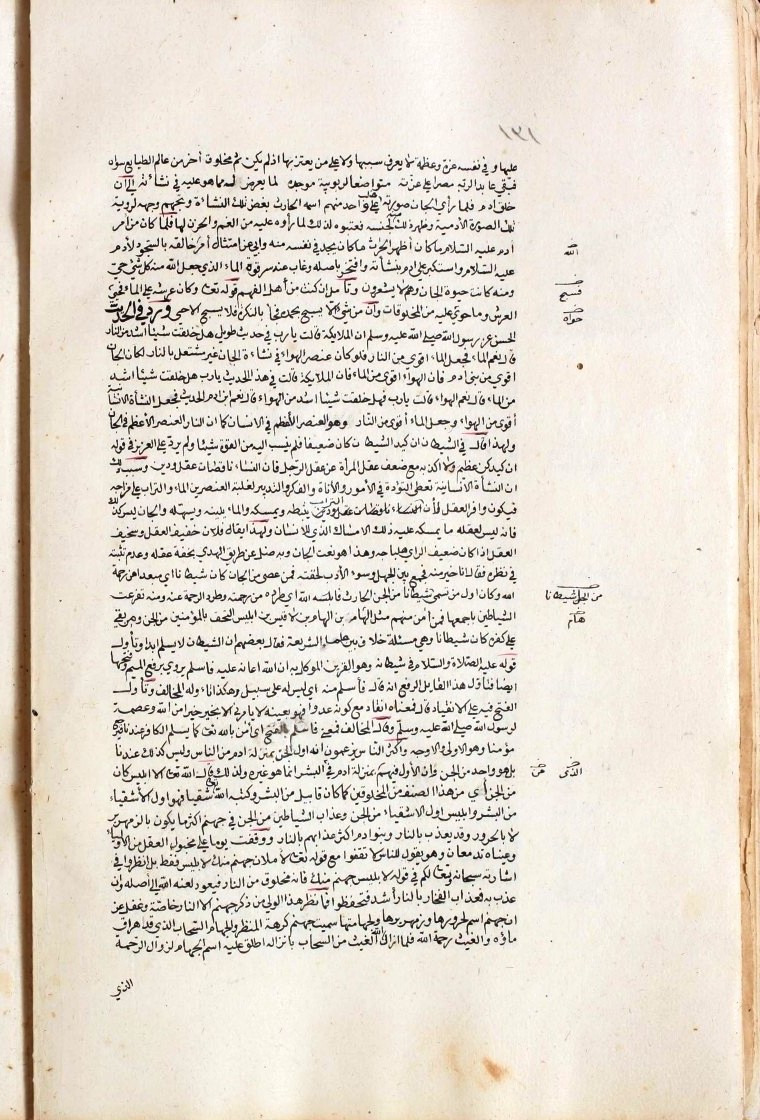 ١٣١
عليها وفي نفسه عزة وعظمة لا يعرف سببها ولا على من يعتز بها اذ لم يكن ثم مخلوق آخر من عالم الطبايع سواه
فبقي عابدا لربه مصرا على عزته متواضعا لربوبية موجده لما يعرض له مما هو عليه في نشأته الى ان
خلق ادم فلما رأى الجان صورته غلب على واحد منهم اسمه الحارث بغض تلك النشأة وتجهم وجهه لروية
تلك الصورة الآدمية وظهر ذلك لجنسه فعتبوه لذلك لما رأوه عليه من الغم والحزن لها فلما كان من امر
ادم عليه السلام ما كان أظهر الحرث ما كان يجد في نفسه منه وابى عن امتثال أمر خالقه بالسجود لادم
عليه السلام واستكبر على ادم بنشأته وافتخر باصله وغاب عنه سر قوة الماء الذي جعل الله منه كل شيء حي
ومنه كانت حيوة الجان وهم لا يشعرون وتأمل ان كنت من أهل الفهم قوله تعالى وكان عرشه على الماء فحيي
العرش وما حوى عليه من المخلوقات وان من شيء الا يسبح بحمده فجاء بالنكرة فلا يسبح الا حي وورد في الحديث
الحسن عن رسول الله صلى الله عليه وسلم ان الملايكة قالت يا رب في حديث طويل هل خلقت شيئا أشد من النار
قال نعم الماء فجعل الماء اقوى من النار فلو كان عنصر الهواء في نشأة الجان غير مشتعل بالنار لكان الجان
اقوى من بني ادم فان الهواء اقوى من الماء فان الملايكة قالت في هذا الحديث يا رب هل خلقت شيئا اشد
من الماء قال نعم الهواء قالت يا رب فهل خلقت شيئا اشد من الهواء قال نعم ابن ادم الحديث فجعل النشأة الانسانية
أقوى من الهواء وجعل الماء أقوى من النار وهو العنصر الأعظم في الانسان كما ان النار العنصر الأعظم في الجان
ولهذا قال في الشيطان ان كيد الشيطان كان ضعيفا فلم ينسب اليه من القوة شيئا ولم يرد على العزيز في قوله
ان كيدكن عظيم ولا أكذبه مع ضعف عقل المرأة عن عقل الرجل فان النساء ناقصات عقل ودين وسبب ذلك
ان النشأة الانسانية تعطي التؤدة في الأمور والأناة والفكر والتدبير لغلبة العنصرين الماء والتراب على مزاجه
فيكون وافر العقل لأن التراب يثبطه ويمسكه والماء يلينه ويسهله والجان ليس كذلك
فانه ليس لعقله ما يمسكه عليه ذلك الامساك الذي للانسان ولهذا يقال فلان خفيف العقل وسخيف
العقل اذا كان ضعيف الراي هلباجه وهذا هو نعت الجان وبه ضل عن طريق الهدى بخفة عقله وعدم تثبته
في نظره فقال انا خير منه فجمع بين الجهل وسوء الأدب لخفته فمن عصى من الجان كان شيطانا اي مبعدا من رحمة
الله وكان اول من سمي شيطانا من الجن الحارث فابلسه الله اي طرده من رحمته وطرد الرحمة عنه ومنه تفرعت
الشياطين باجمعها فمن امن منهم مثل الهام بن الهام بن لاقيس بن ابليس التحق بالمؤمنين من الجن ومن بقي
على كفره كان شيطانا وهي مسئلة خلاف بين علماء الشريعة فقال بعضهم ان الشيطان لا يسلم ابدا وتأول
قوله عليه الصلاة والسلام في شيطانه وهو القرين الموكل به ان الله اعانه عليه فاسلم يروى برفع الميم وفتحها
ايضا فتأول هذا القايل الرفع انه قال فأسلم منه اي ليس له علي سبيل وهكذا تأوله المخالف وتأول
الفتح فيه على الانقياد قال فمعناه انقاد مع كونه عدوا فهو بعينه لا يأمرني الا بخير جبرا من الله وعصمة
لرسول الله صلى الله عليه وسلم وقال المخالف فمعنى فاسلم بالفتح اي أمن بالله تعالى كما يسلم الكافر عندنا فيرجع
مؤمنا وهو الاولى والاوجه واكثر الناس يزعمون انه اول الجن بمنزلة ادم من الناس وليس كذلك عندنا
بل هو واحد من الجن وان الأول فيهم بمنزلة ادم في البشر انما هو غيره ولذلك قال الله تعالى الا ابليس كان
من الجن أي من هذا الصنف من المخلوقين كما كان قابيل من البشر وكتبه الله شقيا فهو اول الأشقياء
من البشر وابليس اول الأشقياء من الجن وعذاب الشياطين من الجن في جهنم اكثر ما يكون بالزمهرير
لا بالحرور وقد يعذب بالنار وبنو ادم اكثر عذابهم بالنار ووقفت يوما على مخبول العقل من الأولياء
وعيناه تدمعان وهو يقول للناس لا تقفوا مع قوله تعالى لأملان جهنم منك لابليس فقط بل انظروا في
اشارته سبحانه وتعالى لكم في قوله لابليس جهنم منك فانه مخلوق من النار فيعود لعنه الله الى اصله وان
عذب به فعذاب الفخار بالنار أشد فتحفظوا فما نظر هذا الولي من ذكر جهنم الا النار خاصة وغفل عن
ان جهنم اسم لحرورها وزمهريرها وبجهامتها سميت جهنم لأنها كريهة المنظر والجهام السحاب الذي قد هراق
ماؤه والغيث رحمة الله فلما ازال الله الغيث من السحاب بانزاله اطلق عليه اسم الجهام لزوال الرحمة
الذي
الله
فسبح
حواه
من الجن شيطانا
هام
الذي
من